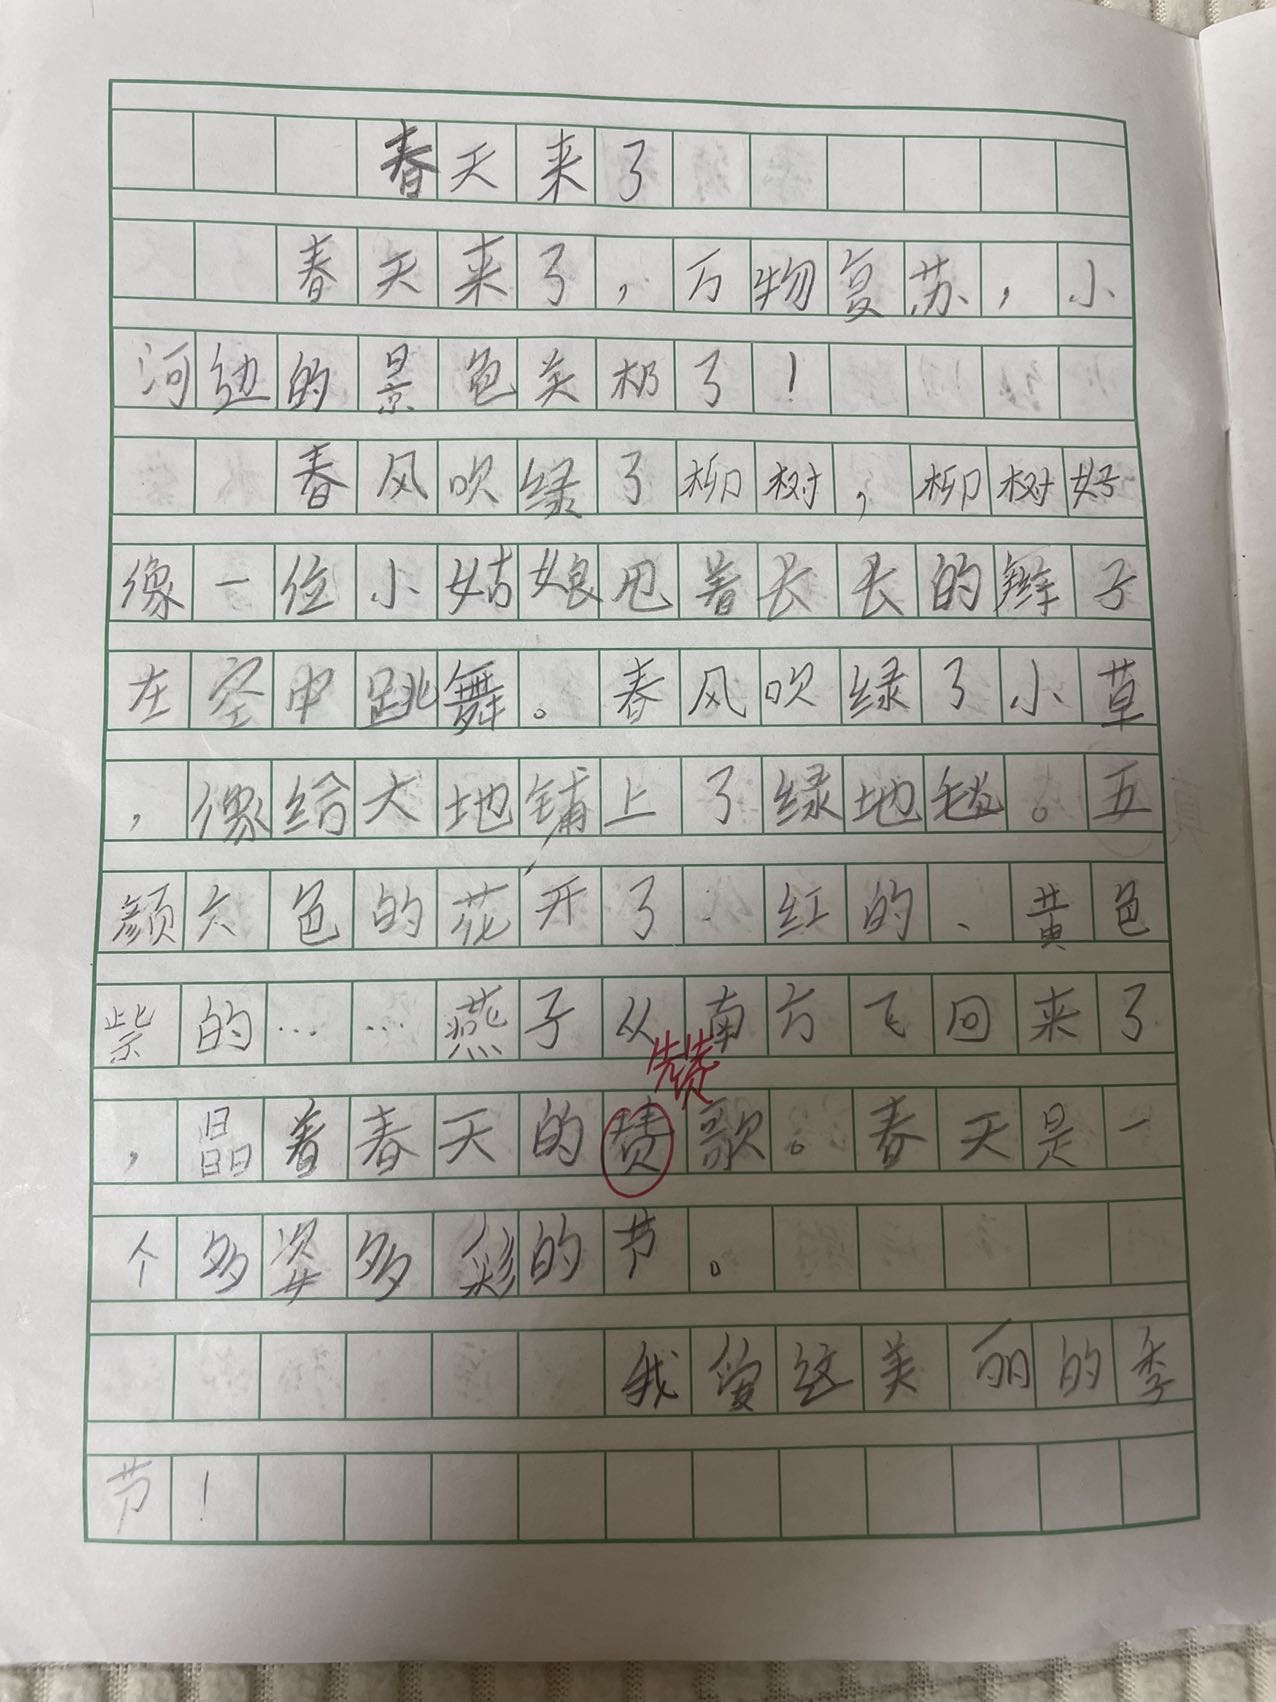 春天来了
春天来了，万物复苏，小
河边的景色美极了！
春风吹绿了柳树，柳树好
像一位小姑娘甩着长长的辫子
在空中跳舞。春风吹绿了小草
，像给大地铺上了绿地毯。五
颜六色的花开了.红的、黄色
紫的……燕子从南方飞回来了
赞
，晶着春天的赞歌。春天是一
个多姿多彩的节。
我爱这美丽的季
节！